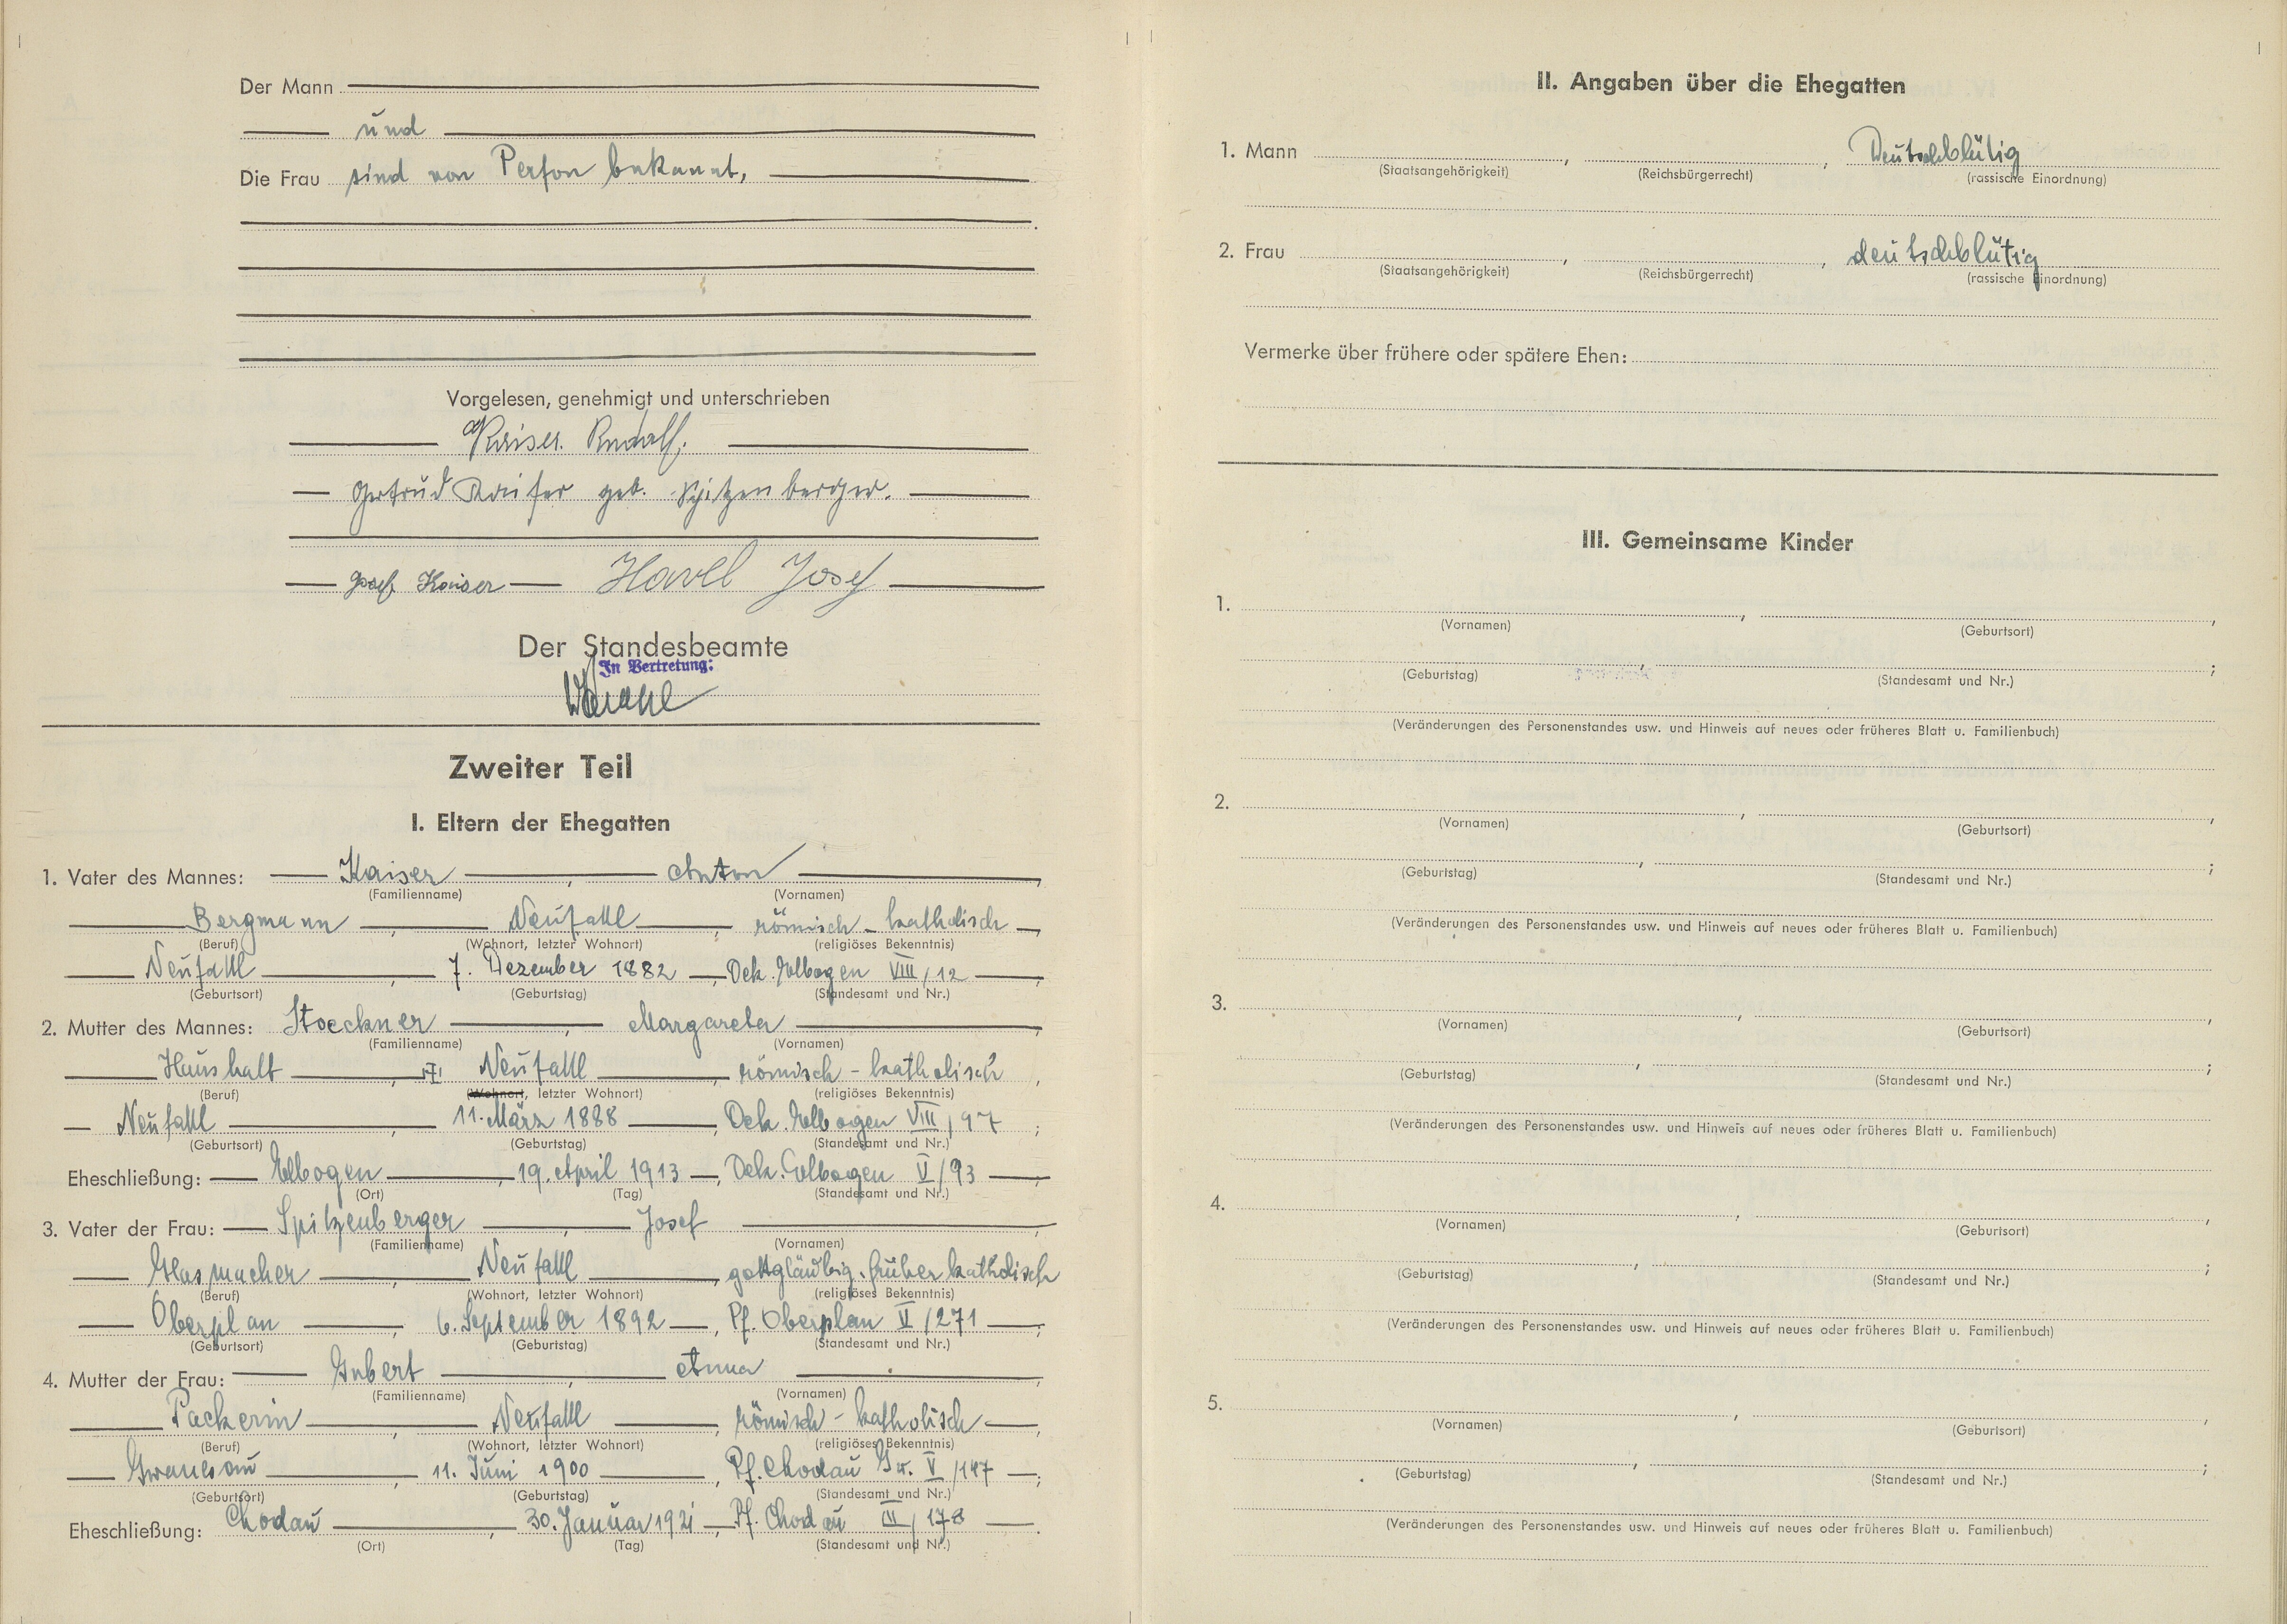 Der Mann
und
Die Frau sind von Person bekannt,
Vorgelesen, genehmigt und unterschrieben
Kaiser Rudolf.
Gertrud Kaiser geb. Spitzenberger.
Josef Kaiser Havel Josef
Der Standesbeamte
In Vertretung:
Zweiter Teil
I. Eltern der Ehegatten
1. Vater des Mannes: Kaiser, Anton,
(Familienname) (Vornamen)
Bergmann, Neusattl, römisch-katholisch,
(Beruf) (Wohnort, letzter Wohnort) (religiöses Bekenntnis)
Neusattl, 7. Dezember 1882, Dek. Elbogen VIII/12;
(Geburtsort) (Geburtstag) (Standesamt und Nr.)
2. Mutter des Mannes: Stoeckner, Margareta,
(Familienname) (Vornamen)
Haushalt, Neusattl, römisch-katholisch,
(Beruf) (Wohnort, letzter Wohnort) (religiöses Bekenntnis)
Neusattl, 11. März 1888, Dek. Elbogen VIII/97;
(Geburtsort) (Geburtstag) (Standesamt und Nr.)
Eheschließung: Elbogen, 19. April 1913, Dek. Elbogen V/93
(Ort) (Tag) (Standesamt und Nr.)
3. Vater der Frau: Spitzenberger, Josef
(Familienname) (Vornamen)
Glasmacher, Neusattl, gottgläubig, früher katholisch
(Beruf) (Wohnort, letzter Wohnort) (religiöses Bekenntnis)
Oberplan, 6. September 1892, Pf. Oberplan V/271;
(Geburtsort) (Geburtstag) (Standesamt und Nr.)
4. Mutter der Frau: Gubert, Anna,
(Familienname) (Vornamen)
Packerin, Neusattl, römisch-katholisch,
(Beruf) (Wohnort, letzter Wohnort) (religiöses Bekenntnis)
11. Juni 1900, Pf. Chodau V/147;
(Geburtsort) (Geburtstag) (Standesamt und Nr.)
Eheschließung: Chodau, 30. Januar 1921, Pf. Chodau III/178.
(Ort) (Tag) (Standesamt und Nr.)
II. Angaben über die Ehegatten
1. Mann , , Deutschblütig
(Staatsangehörigkeit) (Reichsbürgerrecht) (rassische Einordnung)
2. Frau , , deutschblütig
(Staatsangehörigkeit) (Reichsbürgerrecht) (rassische Einordnung)
Vermerke über frühere oder spätere Ehen:
III. Gemeinsame Kinder
1. , ,
(Vornamen) (Geburtsort)
, ;
(Geburtstag) (Standesamt und Nr.)
(Veränderungen des Personenstandes usw. und Hinweis auf neues oder früheres Blatt u. Familienbuch)
2. , ,
(Vornamen) (Geburtsort)
, ;
(Geburtstag) (Standesamt und Nr.)
(Veränderungen des Personenstandes usw. und Hinweis auf neues oder früheres Blatt u. Familienbuch)
3. , ,
(Vornamen) (Geburtsort)
, ;
(Geburtstag) (Standesamt und Nr.)
(Veränderungen des Personenstandes usw. und Hinweis auf neues oder früheres Blatt u. Familienbuch)
4. , ,
(Vornamen) (Geburtsort)
, ;
(Geburtstag) (Standesamt und Nr.)
(Veränderungen des Personenstandes usw. und Hinweis auf neues oder früheres Blatt u. Familienbuch)
5. , ,
(Vornamen) (Geburtsort)
, ;
(Geburtstag) (Standesamt und Nr.)
(Veränderungen des Personenstandes usw. und Hinweis auf neues oder früheres Blatt u. Familienbuch)